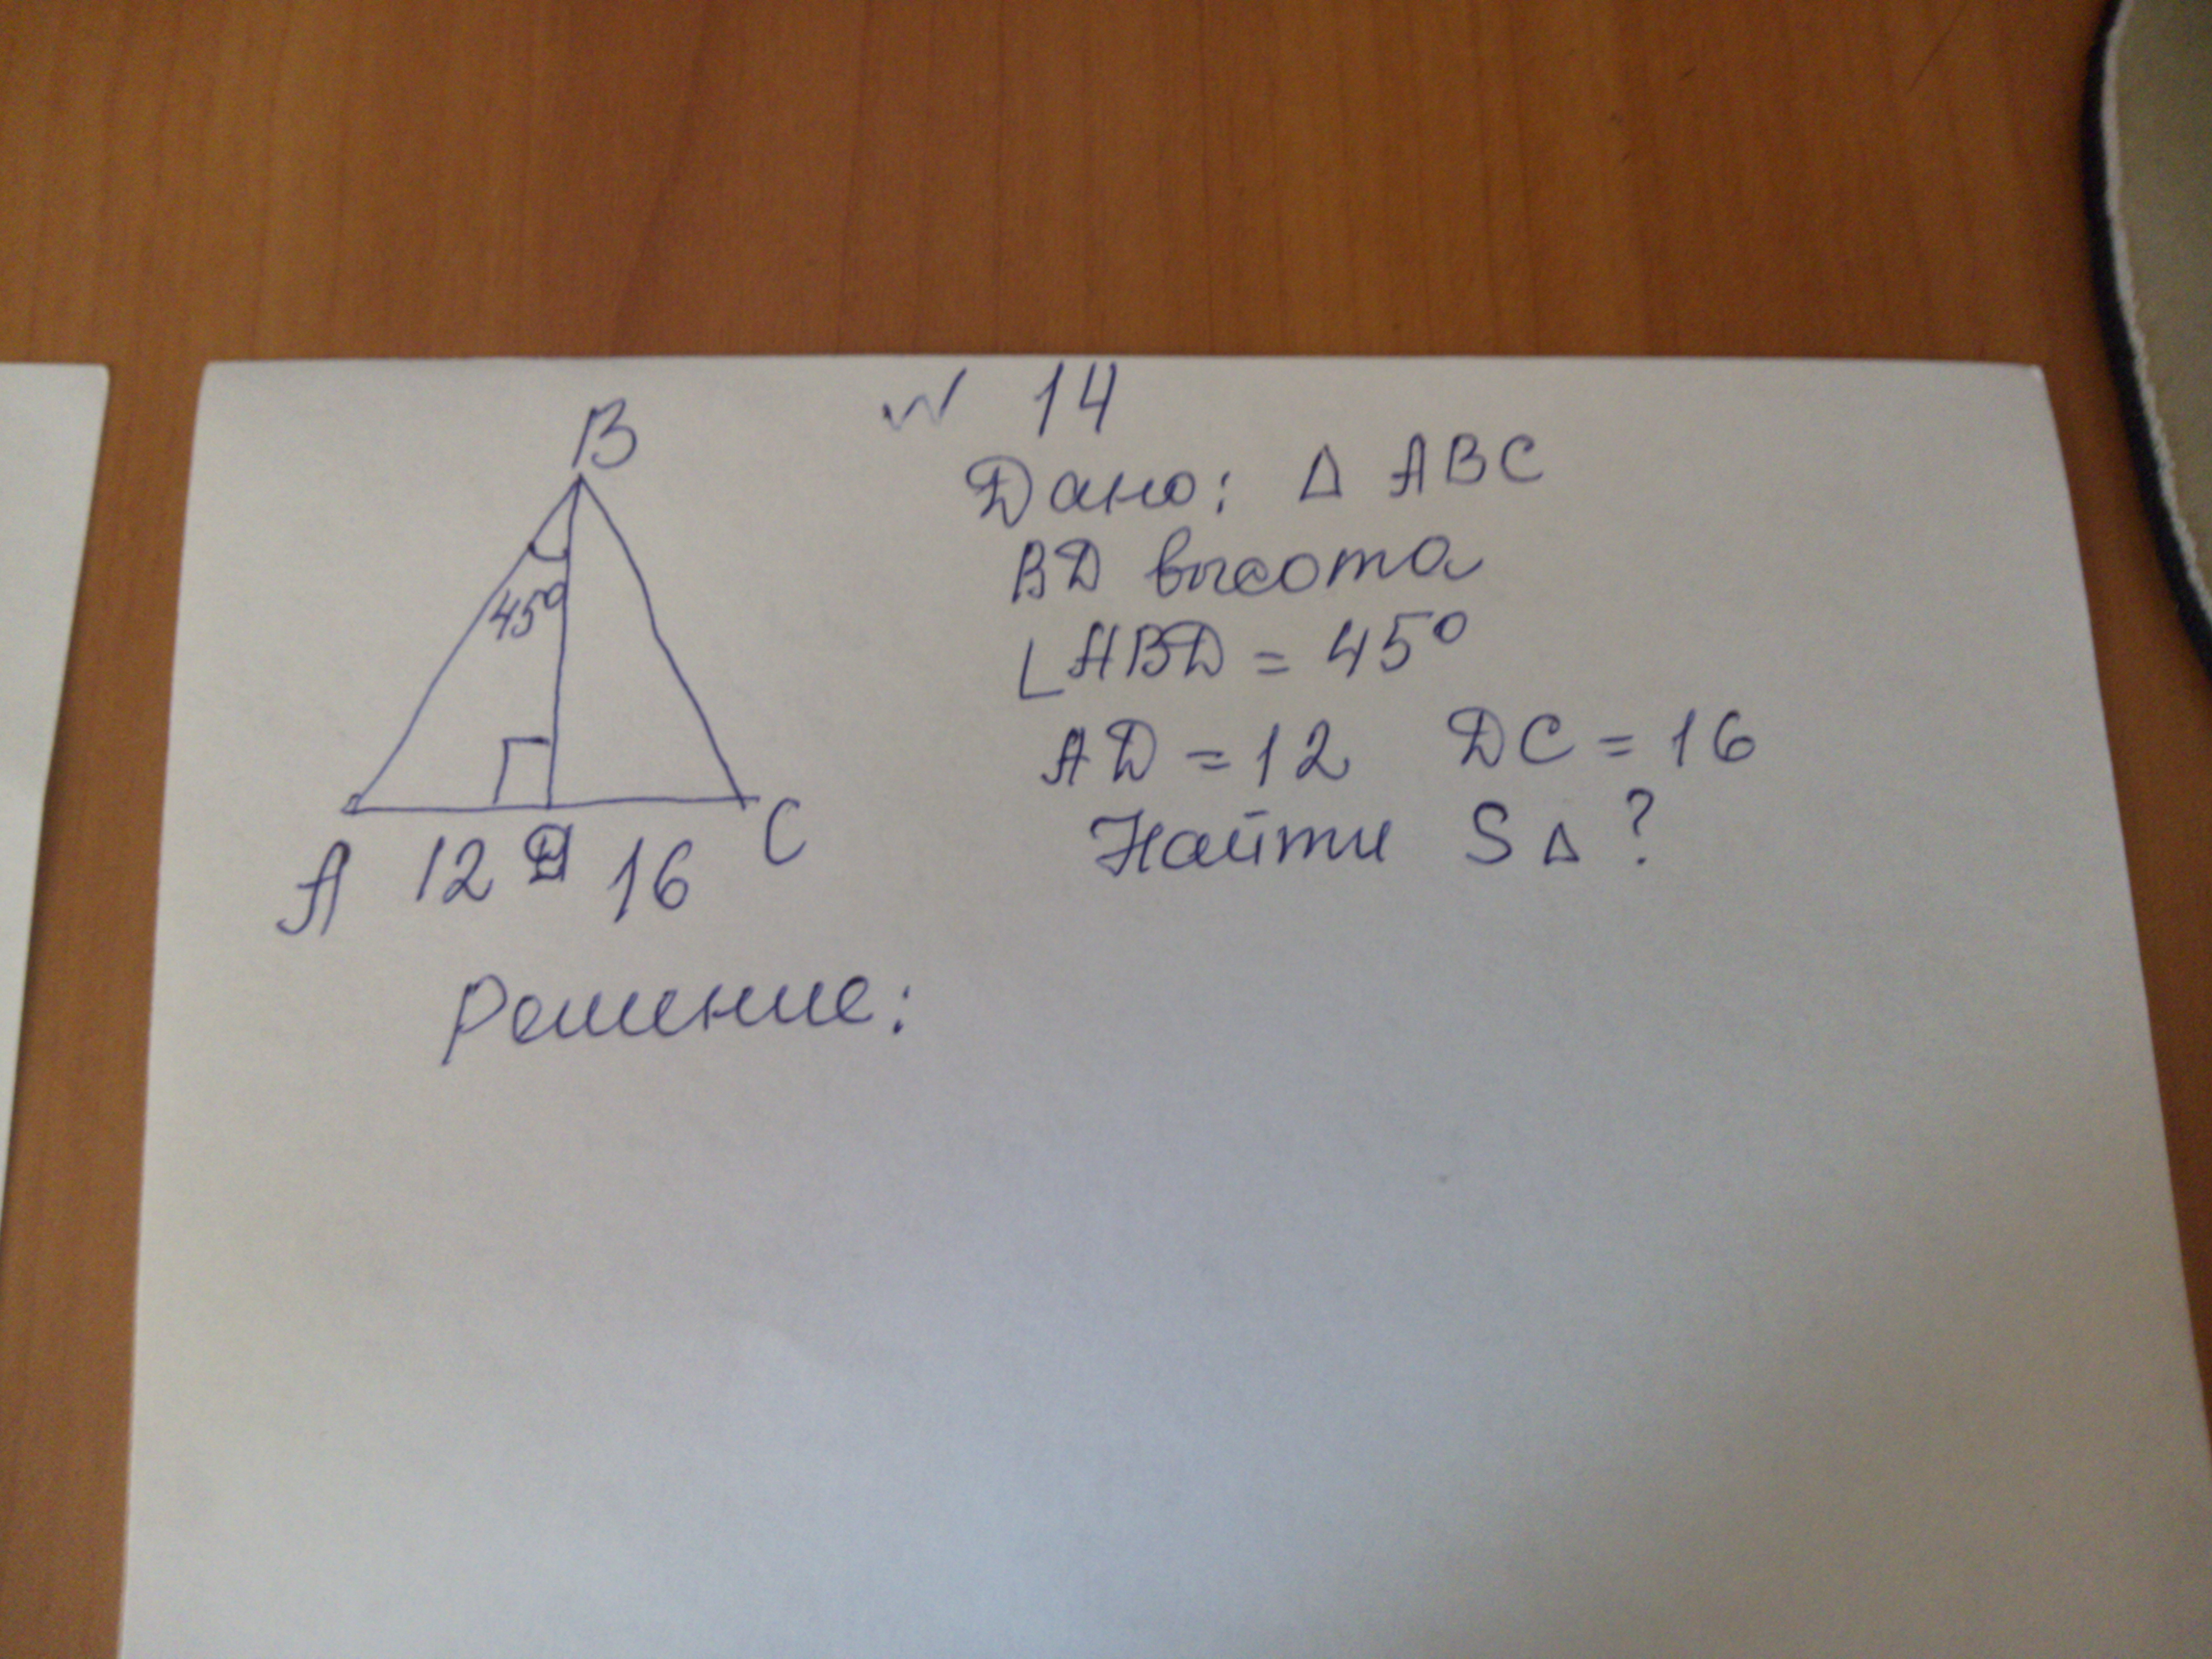 № 14
B
45°
A 12 D 16 C
Дано: Δ ABC
BD высота
∠ABD = 45°
AD = 12 DC = 16
Найти S Δ ?
Решение: